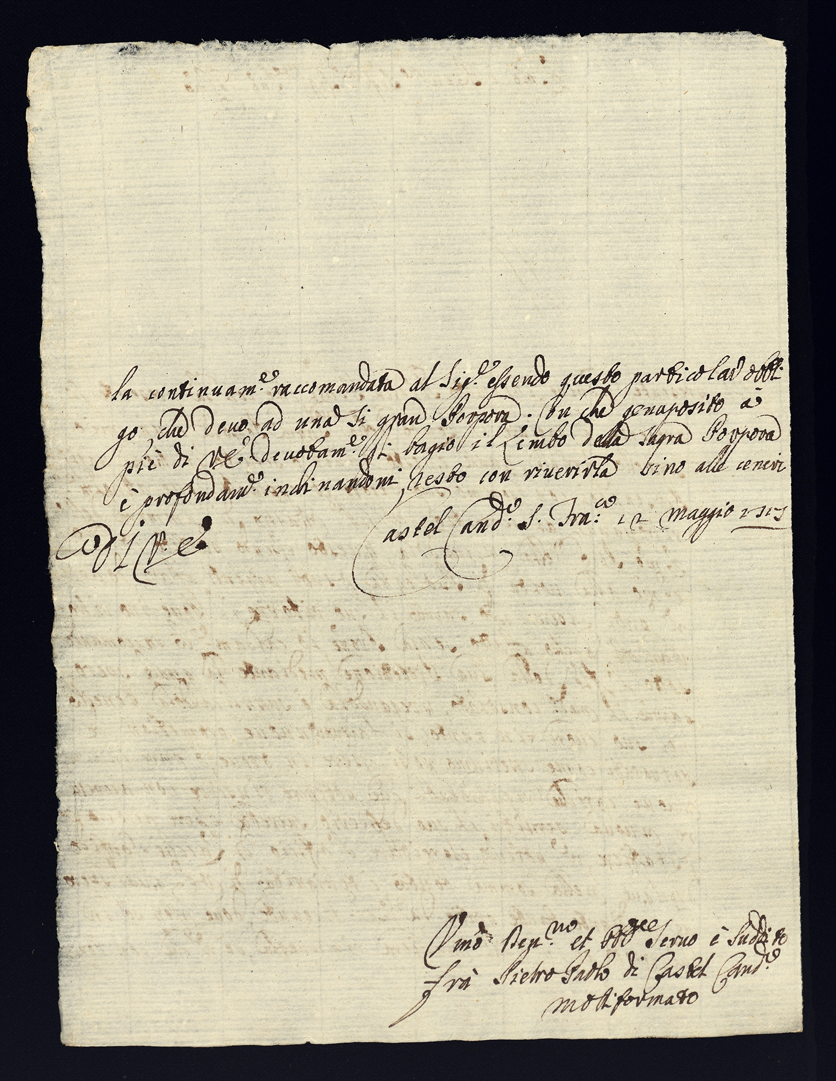 la continuam.e raccomandata al Sig.e essendo questo particolar obbli
go, che devo ad una si gran Porpora. Con che genuflesso à
piè di VE. devotam.e li bagio il Lembo della Sagra Porpora
è profondam.e inchinandomi, resto con riverirla sino alle ceneri
D V. E.
Castel Cand.o S. Fran.co 12 Maggio
Vmo Den.mo et Obb.mo Servo è Suddito
frà Pietro Paolo di Castel Cand.o